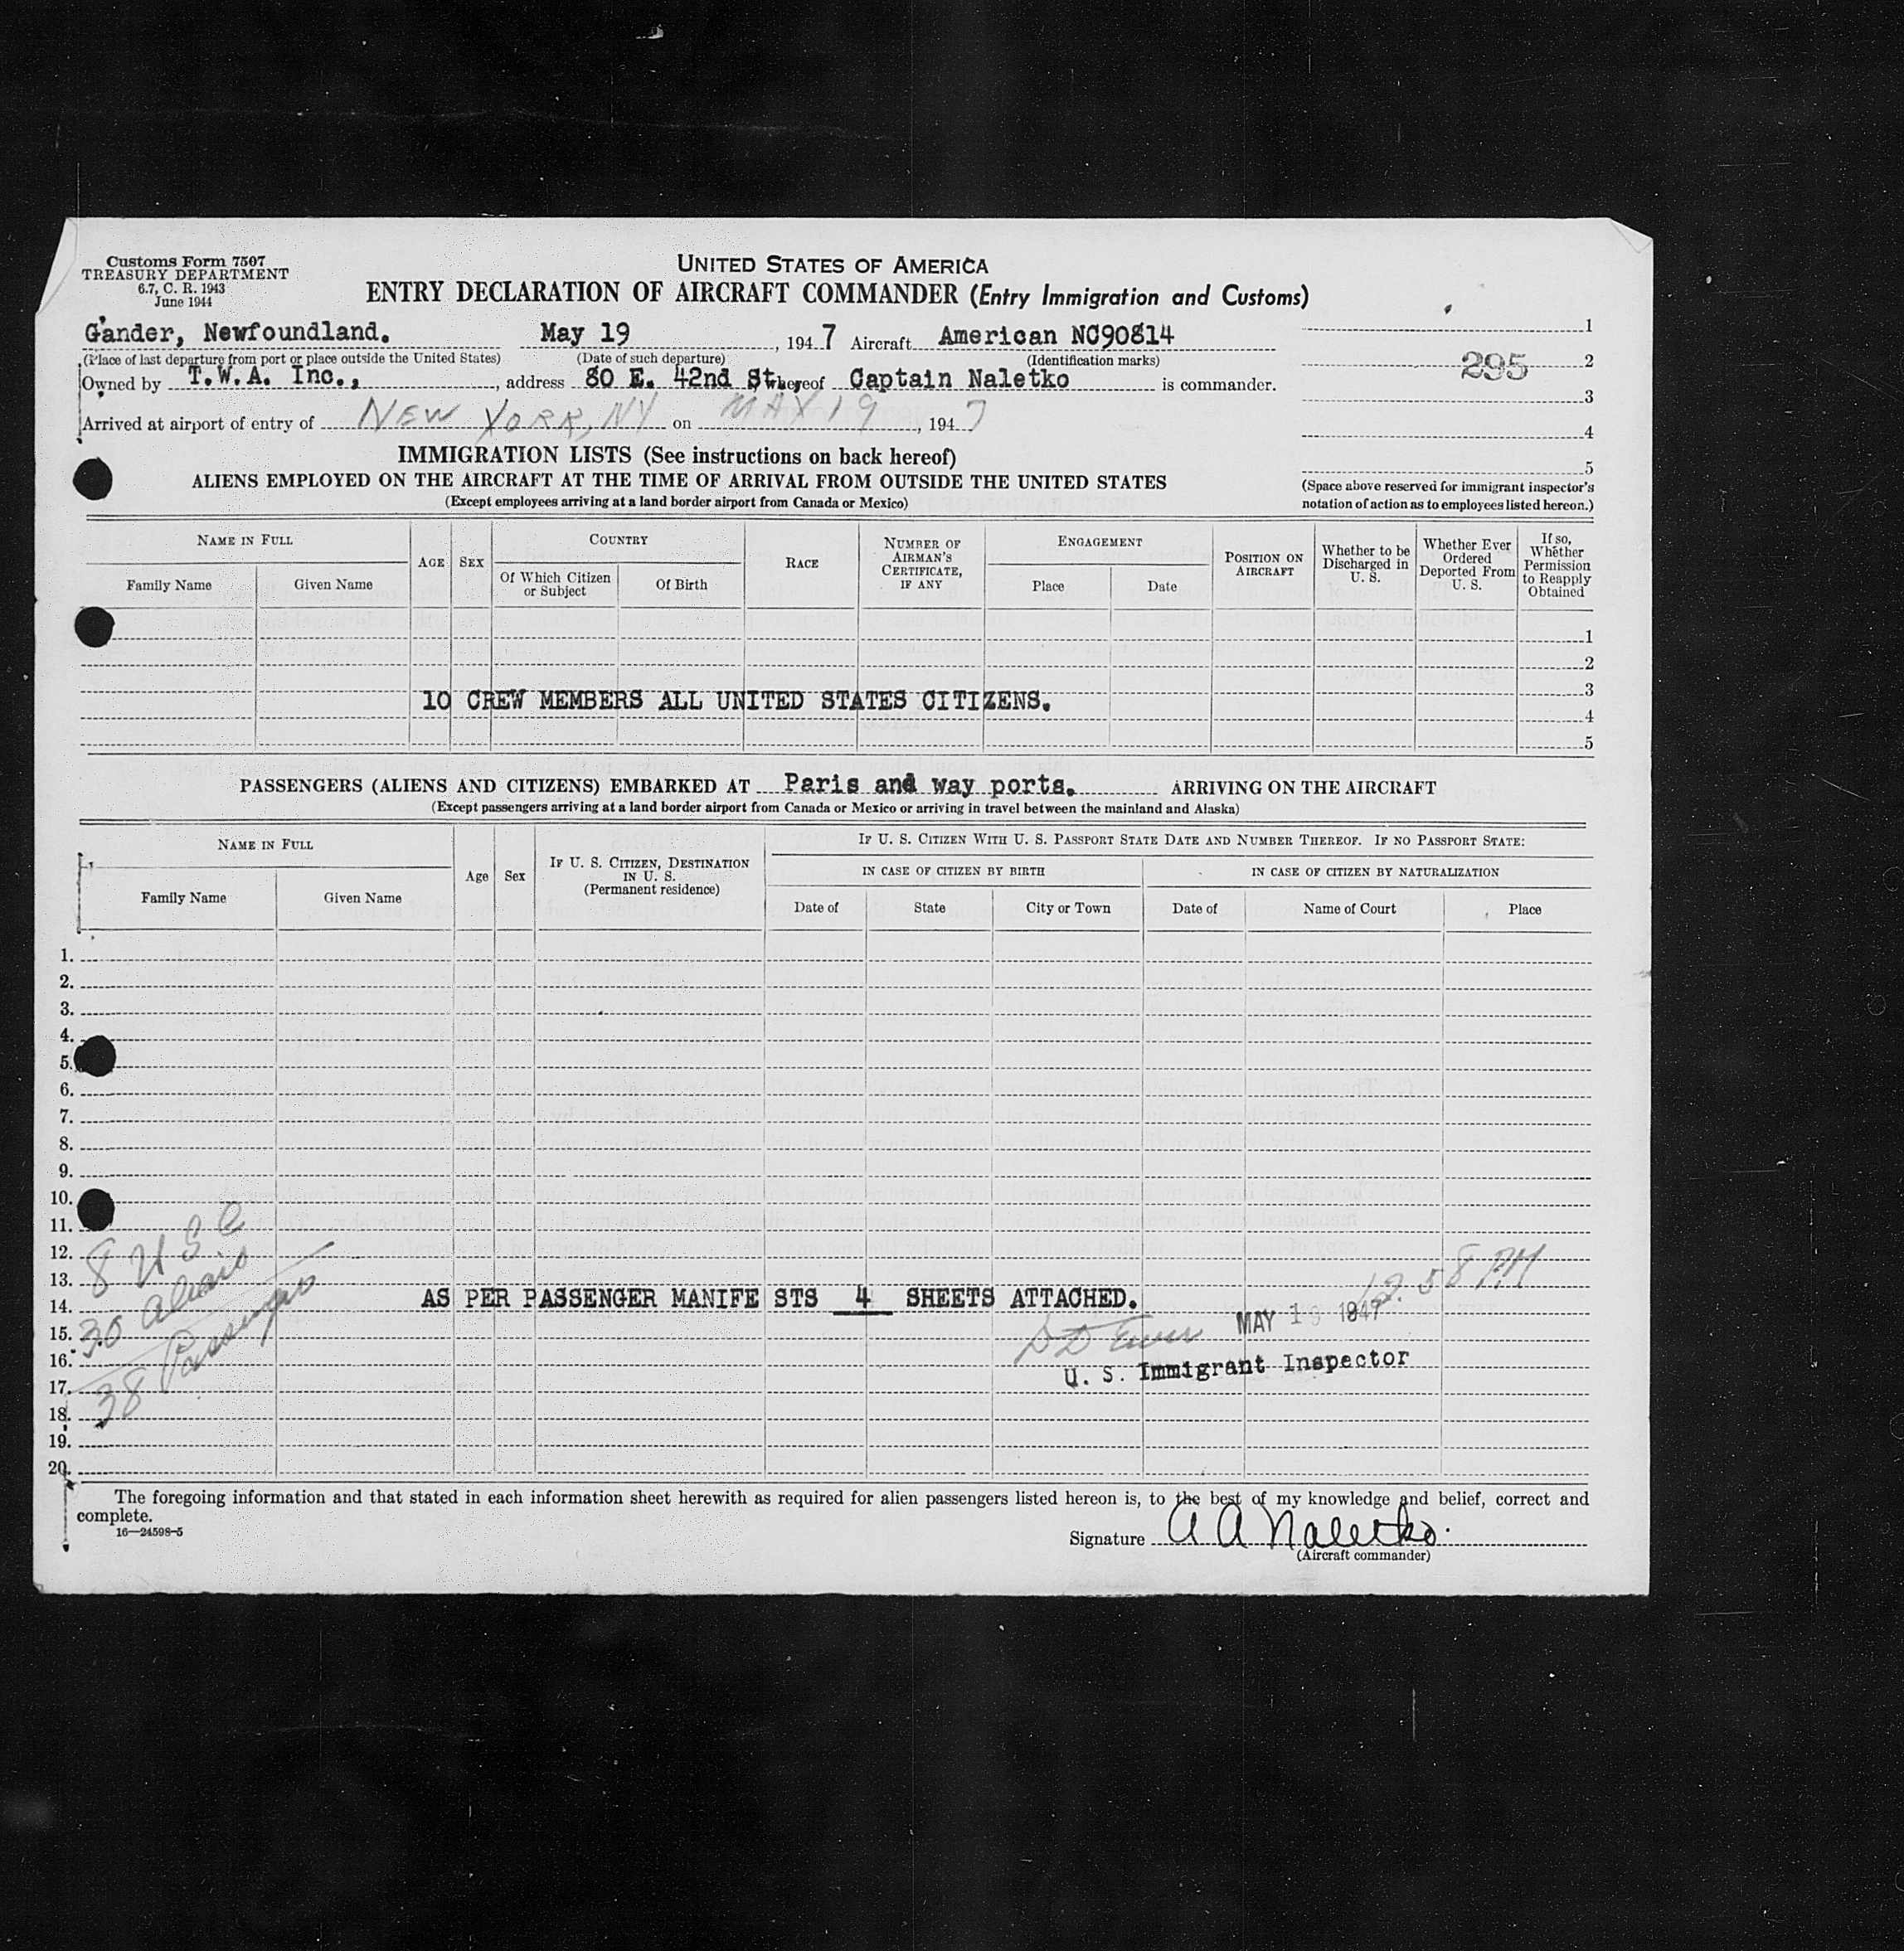 Customs Form 7507
TREASURY DEPARTMENT
6.7, C. R. 1943
June 1944
UNITED STATES OF AMERICA
ENTRY DECLARATION OF AIRCRAFT COMMANDER (Entry Immigration and Customs)
Gander, Newfoundland. May 19, 1947 Aircraft American NC90814
(Place of last departure from port or place outside the United States) (Date of such departure) (Identification marks)
Owned by T.W.A. Inc., , address 80 E. 42nd St. whereof Captain Naletko is commander.
Arrived at airport of entry of NEW YORK, NY on MAY 19, 1947
1
295 2
3
4
5
(Space above reserved for immigrant inspector's
notation of action as to employees listed hereon.)
IMMIGRATION LISTS (See instructions on back hereof)
ALIENS EMPLOYED ON THE AIRCRAFT AT THE TIME OF ARRIVAL FROM OUTSIDE THE UNITED STATES
(Except employees arriving at a land border airport from Canada or Mexico)
NAME IN FULL
Family Name Given Name
AGE
SEX
COUNTRY
Of Which Citizen
or Subject
Of Birth
RACE
NUMBER OF
AIRMAN'S
CERTIFICATE,
IF ANY
ENGAGEMENT
Place Date
POSITION ON
AIRCRAFT
Whether to be
Discharged in
U. S.
Whether Ever
Ordered
Deported From
U. S.
If so,
Whether
Permission
to Reapply
Obtained
1
2
3
10 CREW MEMBERS ALL UNITED STATES CITIZENS.
4
5
PASSENGERS (ALIENS AND CITIZENS) EMBARKED AT Paris and way ports. ARRIVING ON THE AIRCRAFT
(Except passengers arriving at a land border airport from Canada or Mexico or arriving in travel between the mainland and Alaska)
NAME IN FULL
Family Name Given Name
Age
Sex
IF U. S. CITIZEN, DESTINATION
IN U. S.
(Permanent residence)
IF U. S. CITIZEN WITH U. S. PASSPORT STATE DATE AND NUMBER THEREOF. IF NO PASSPORT STATE:
IN CASE OF CITIZEN BY BIRTH IN CASE OF CITIZEN BY NATURALIZATION
Date of State City or Town Date of Name of Court Place
1.
2.
3.
4.
5.
6.
7.
8.
9.
10.
11.
12.
13.
14.
15.
16.
17.
18.
19.
20.
8 USC
30 Aliens
38 Passengers
AS PER PASSENGER MANIFE STS 4 SHEETS ATTACHED.
12.58 PM
MAY 19 1947
U. S. Immigrant Inspector
The foregoing information and that stated in each information sheet herewith as required for alien passengers listed hereon is, to the best of my knowledge and belief, correct and
complete.
16—24598-5
Signature A A Naletko.
(Aircraft commander)